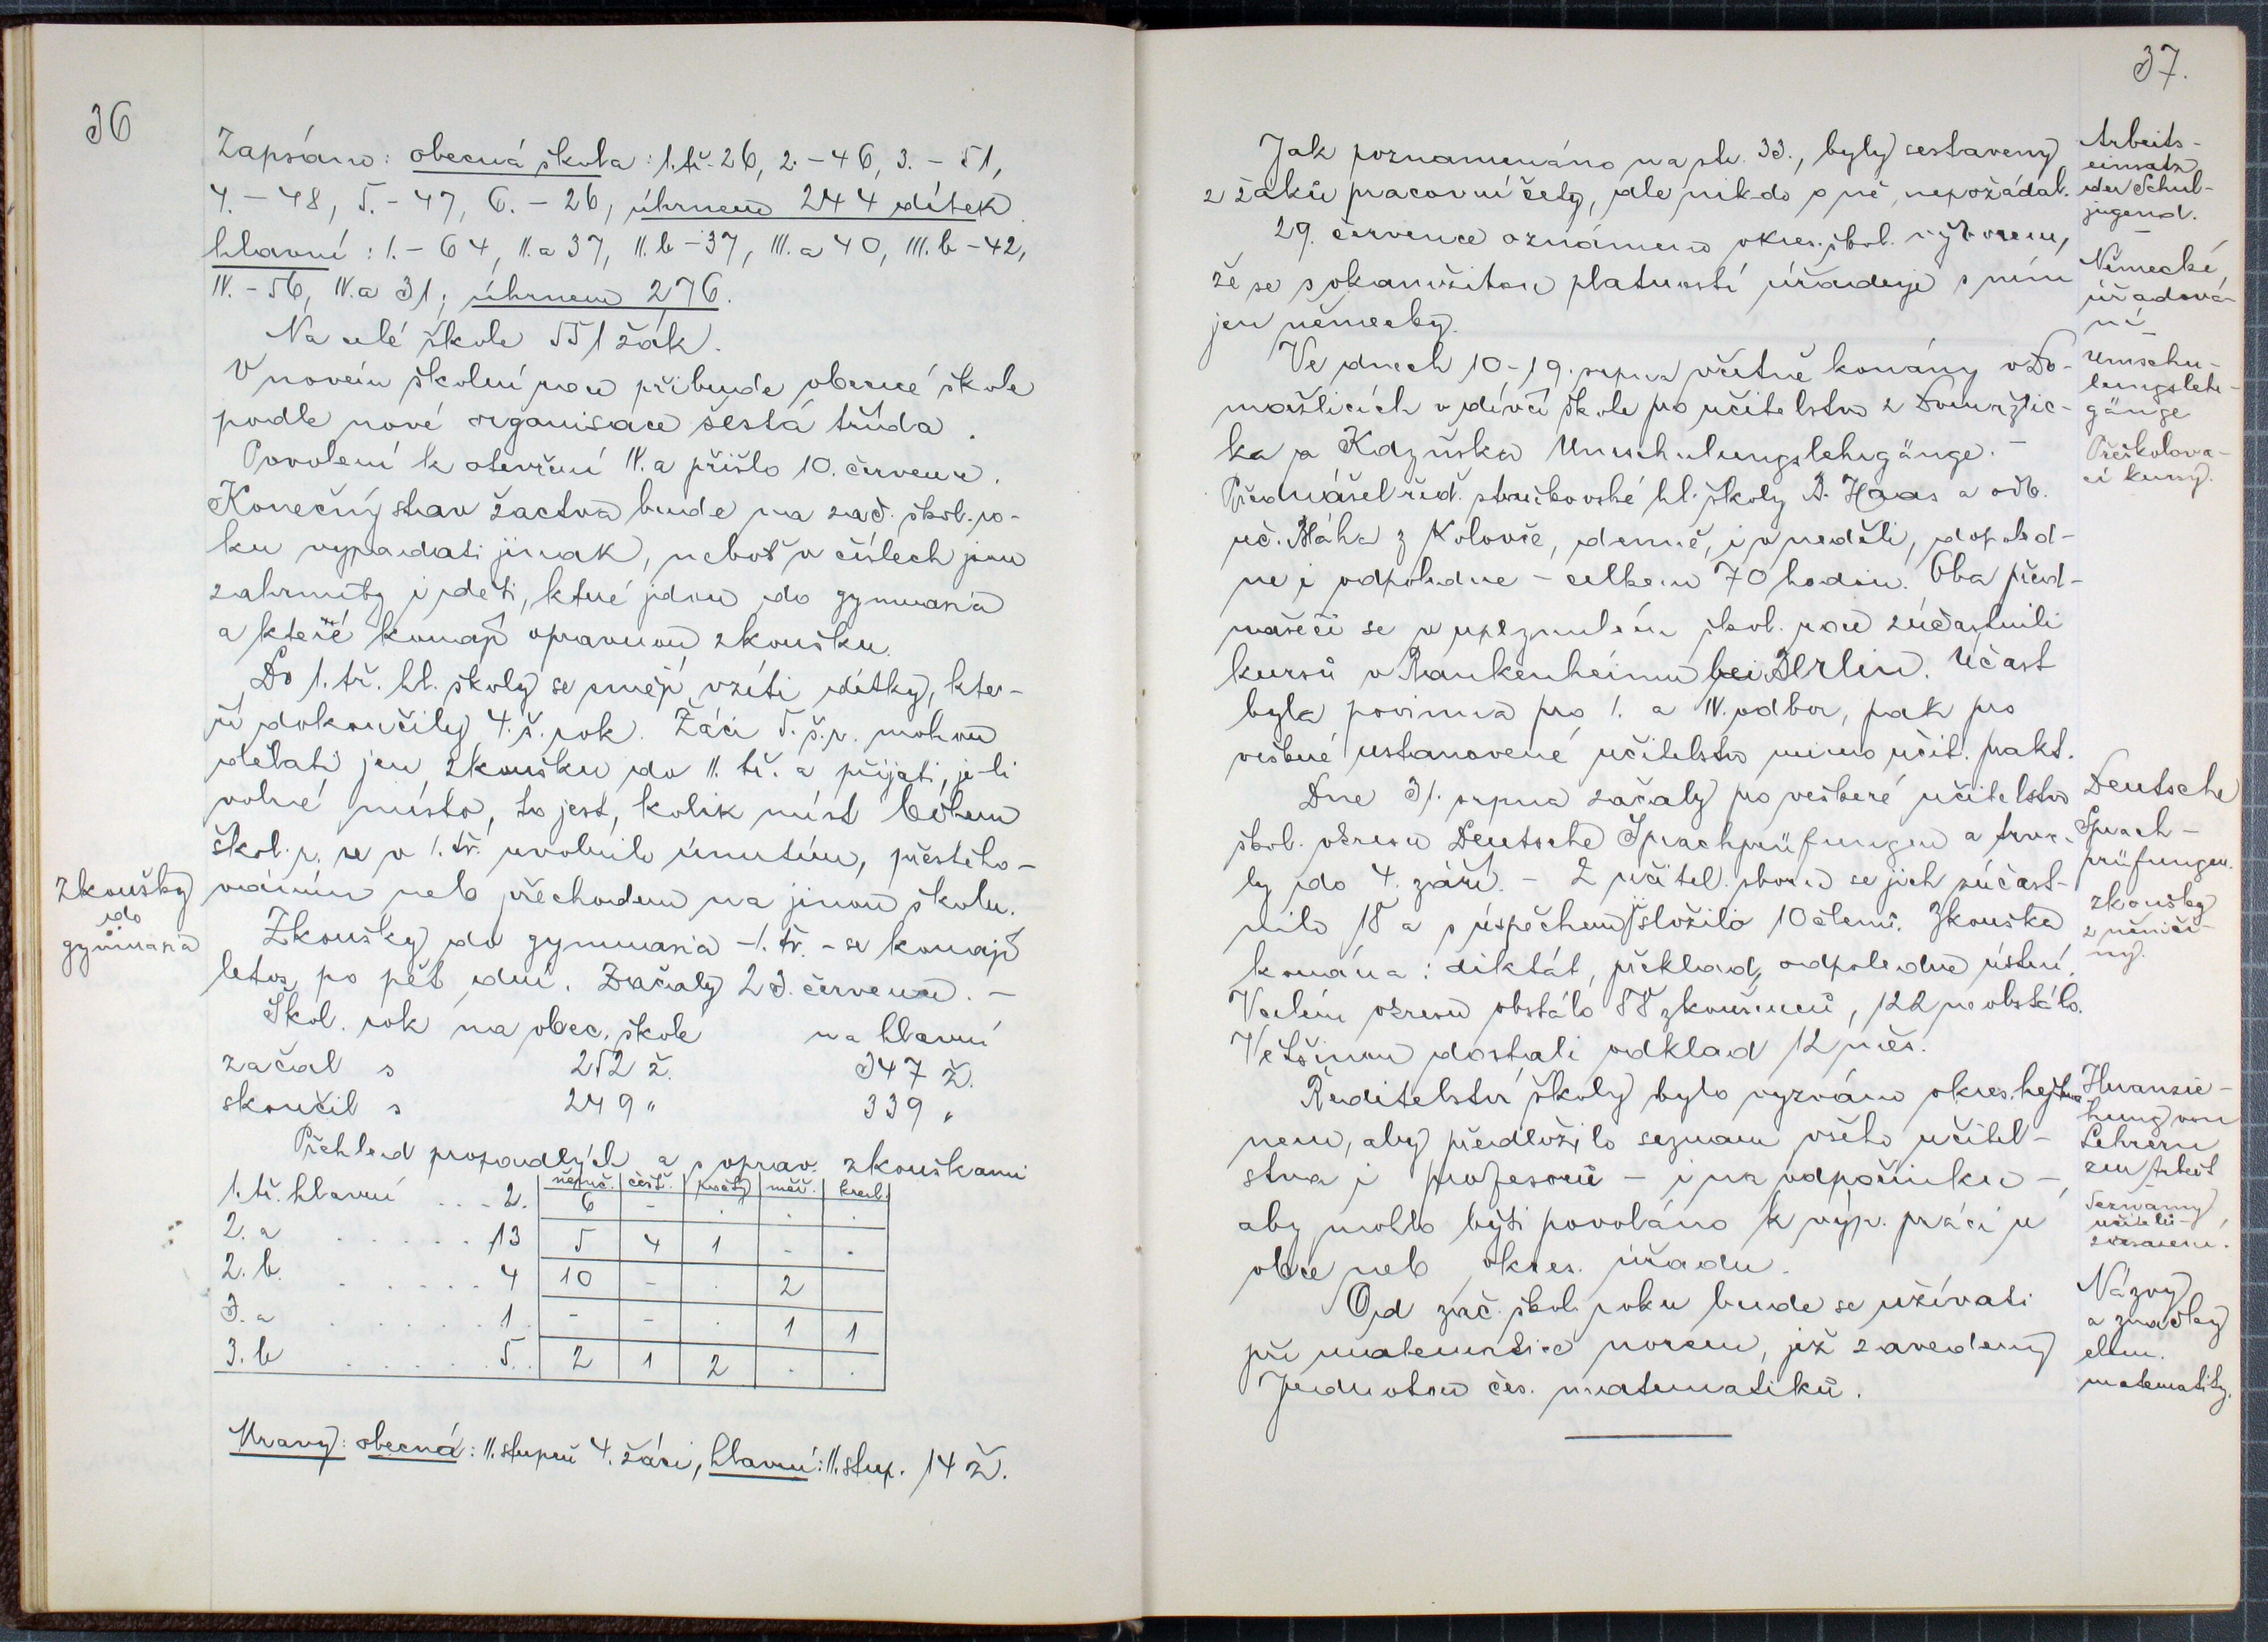 36
Zapsáno: obecná škola: 1. tř. 26, 2. - 46, 3. - 51,
4. - 48, 5. - 47, 6. - 26, úhrnem 244 dítek.
hlavní: I. - 64, II.a 37, II.b - 37, III.a 40, III.b - 42,
IV. - 56, IV.a 31; úhrnem 276.
Na celé škole 551 žák.
V novém školní roce přibude obecné škole
podle nové organisace šestá třída.
Povolení k otevření IV.a přišlo 10. července.
Konečný stav žactva bude na zač. škol. ro-
ku vypadati jinak, neboť v číslech jsou
zahrnuty i děti, které jdou do gymnasia
a které konají opravnou zkoušku.
Do 1. tř. hl. školy se smějí vzíti dítky, kte-
ré dokončily 4. š. rok. Žáci 5. š. r. mohou
dělati jen zkoušku do II. tř. a přijati, je-li
volné místo, to jest, kolik míst během
škol. r. se v 1. tř. uvolnilo úmrtím, přestěho-
váním neb přechodem na jinou školu.
Zkoušky
do
gymnasia
Zkoušky do gymnasia - 1. tř. - se konají
letos po pět dní. Začaly 23. července. -
Škol. rok na obec. škole na hlavní
začal s 252 ž. 347 ž.
skončil s 249 " 339 "
Přehled propadlých a s oprav. zkouškami
němč. češt. počty měř. kresl.
1. tř. hlavní . . . 2. 6 - . . .
2. a . . . . . 13 5 4 1 . .
2. b. . . . . . 4 10 - . 2
3. a . . . . . 1. - - . 1 1
3. b . . . . . 5. 2 1 2 . .
Mravy: obecná: II. stupeň 4. žáci, hlavní: II. stup. 14 ž.
37.
Jak poznamenáno na str. 33., byly sestaveny
z žáků pracovní čety, ale nikdo o ně nepožádal.
29. července oznámeno okres. škol. výborem,
že se s okamžitou platností úřaduje s ním
jen německy.
Ve dnech 10-19. srpna včetně konány v Do-
mažlicích v dívčí škole pro učitelstvo z Domažlic-
ka a Kdyňska Umschulungslehrgänge. -
Přednášel řed. hl. školy A. Haas a odb.
uč. Bláha z Kolovče, denně, i v neděli, dopoled-
ne i odpoledne - celkem 70 hodin. Oba před-
nášeči se v uplynulém škol. roce zúčastnili
kursů v Rankenheimu bei Berlin. Účast
byla povinna pro I. a IV. odbor, pak pro
veškeré ustanovené učitelstvo mimo učit. prakt.
Dne 31. srpna začaly pro veškeré učitelstvo
škol. okresu Deutsche Sprachprüfungen a trva-
ly do 4. září. - Z učitel. sboru se jich zúčast-
nilo 18 a s úspěchem složilo 10 členů. Zkouška
konána: diktát, překlad, odpoledne ústní.
V celém okresu obstálo 88 zkoušenců, 122 neobstálo.
Většinou dostali odklad 12 měs.
Ředitelství školy bylo vyzváno okres. hejtma-
nem, aby předložilo seznam všeho učitel-
stva i profesorů - i na odpočinku -,
aby mohlo býti povoláno k výp. práci u
obce neb okres. úřadu.
Od zač. škol. roku bude se užívati
při matematice norem, již zavedený
Jednotou čes. matematiků.
Arbeits-
einsatz
der Schul-
jugend.
Německé
úřadová-
ní
Umschu-
lungslehr-
gänge
Přeškolova-
cí kursy.
Deutsche
Sprach-
prüfungen.
zkoušky
z němči-
ny.
Heranzie-
hung von
Lehrern
zur Arbeit
Seznamy
učitelů
Názvy
a značky
elem.
matematiky.